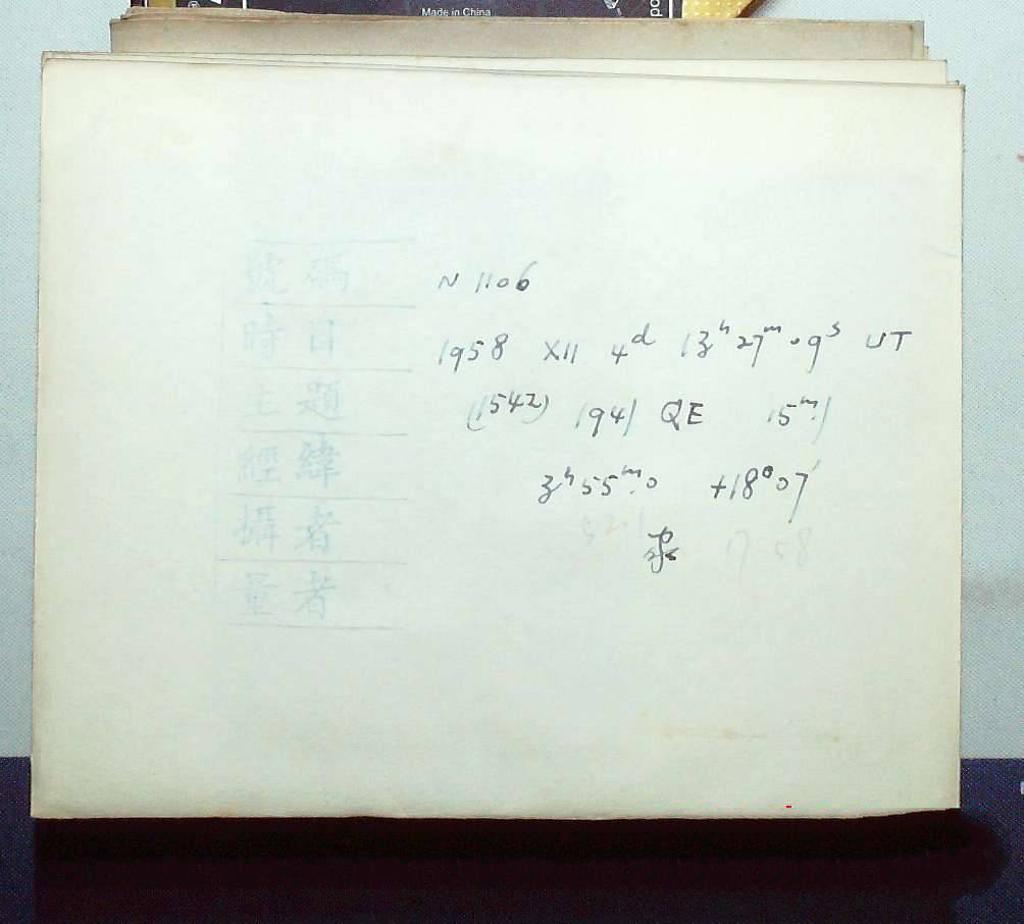 Made in China
號碼 N 1106
時日 1958 XII 4ᵈ 13ʰ 27ᵐ 09ˢ UT
主題 (1542) 1941 QE 15ᵐ.1
經緯 3ʰ 55ᵐ.0 +18°07′
攝者
量者